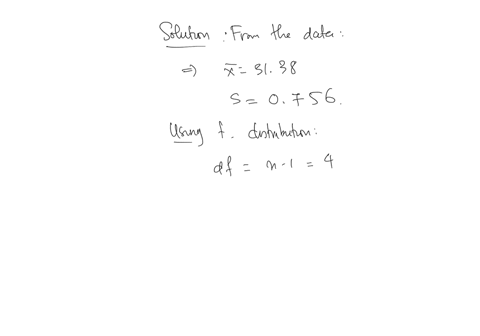 Solution : From the data:
⇒ x̄ = 31.38
S = 0.756.
Using t. distribution:
df = n-1 = 4